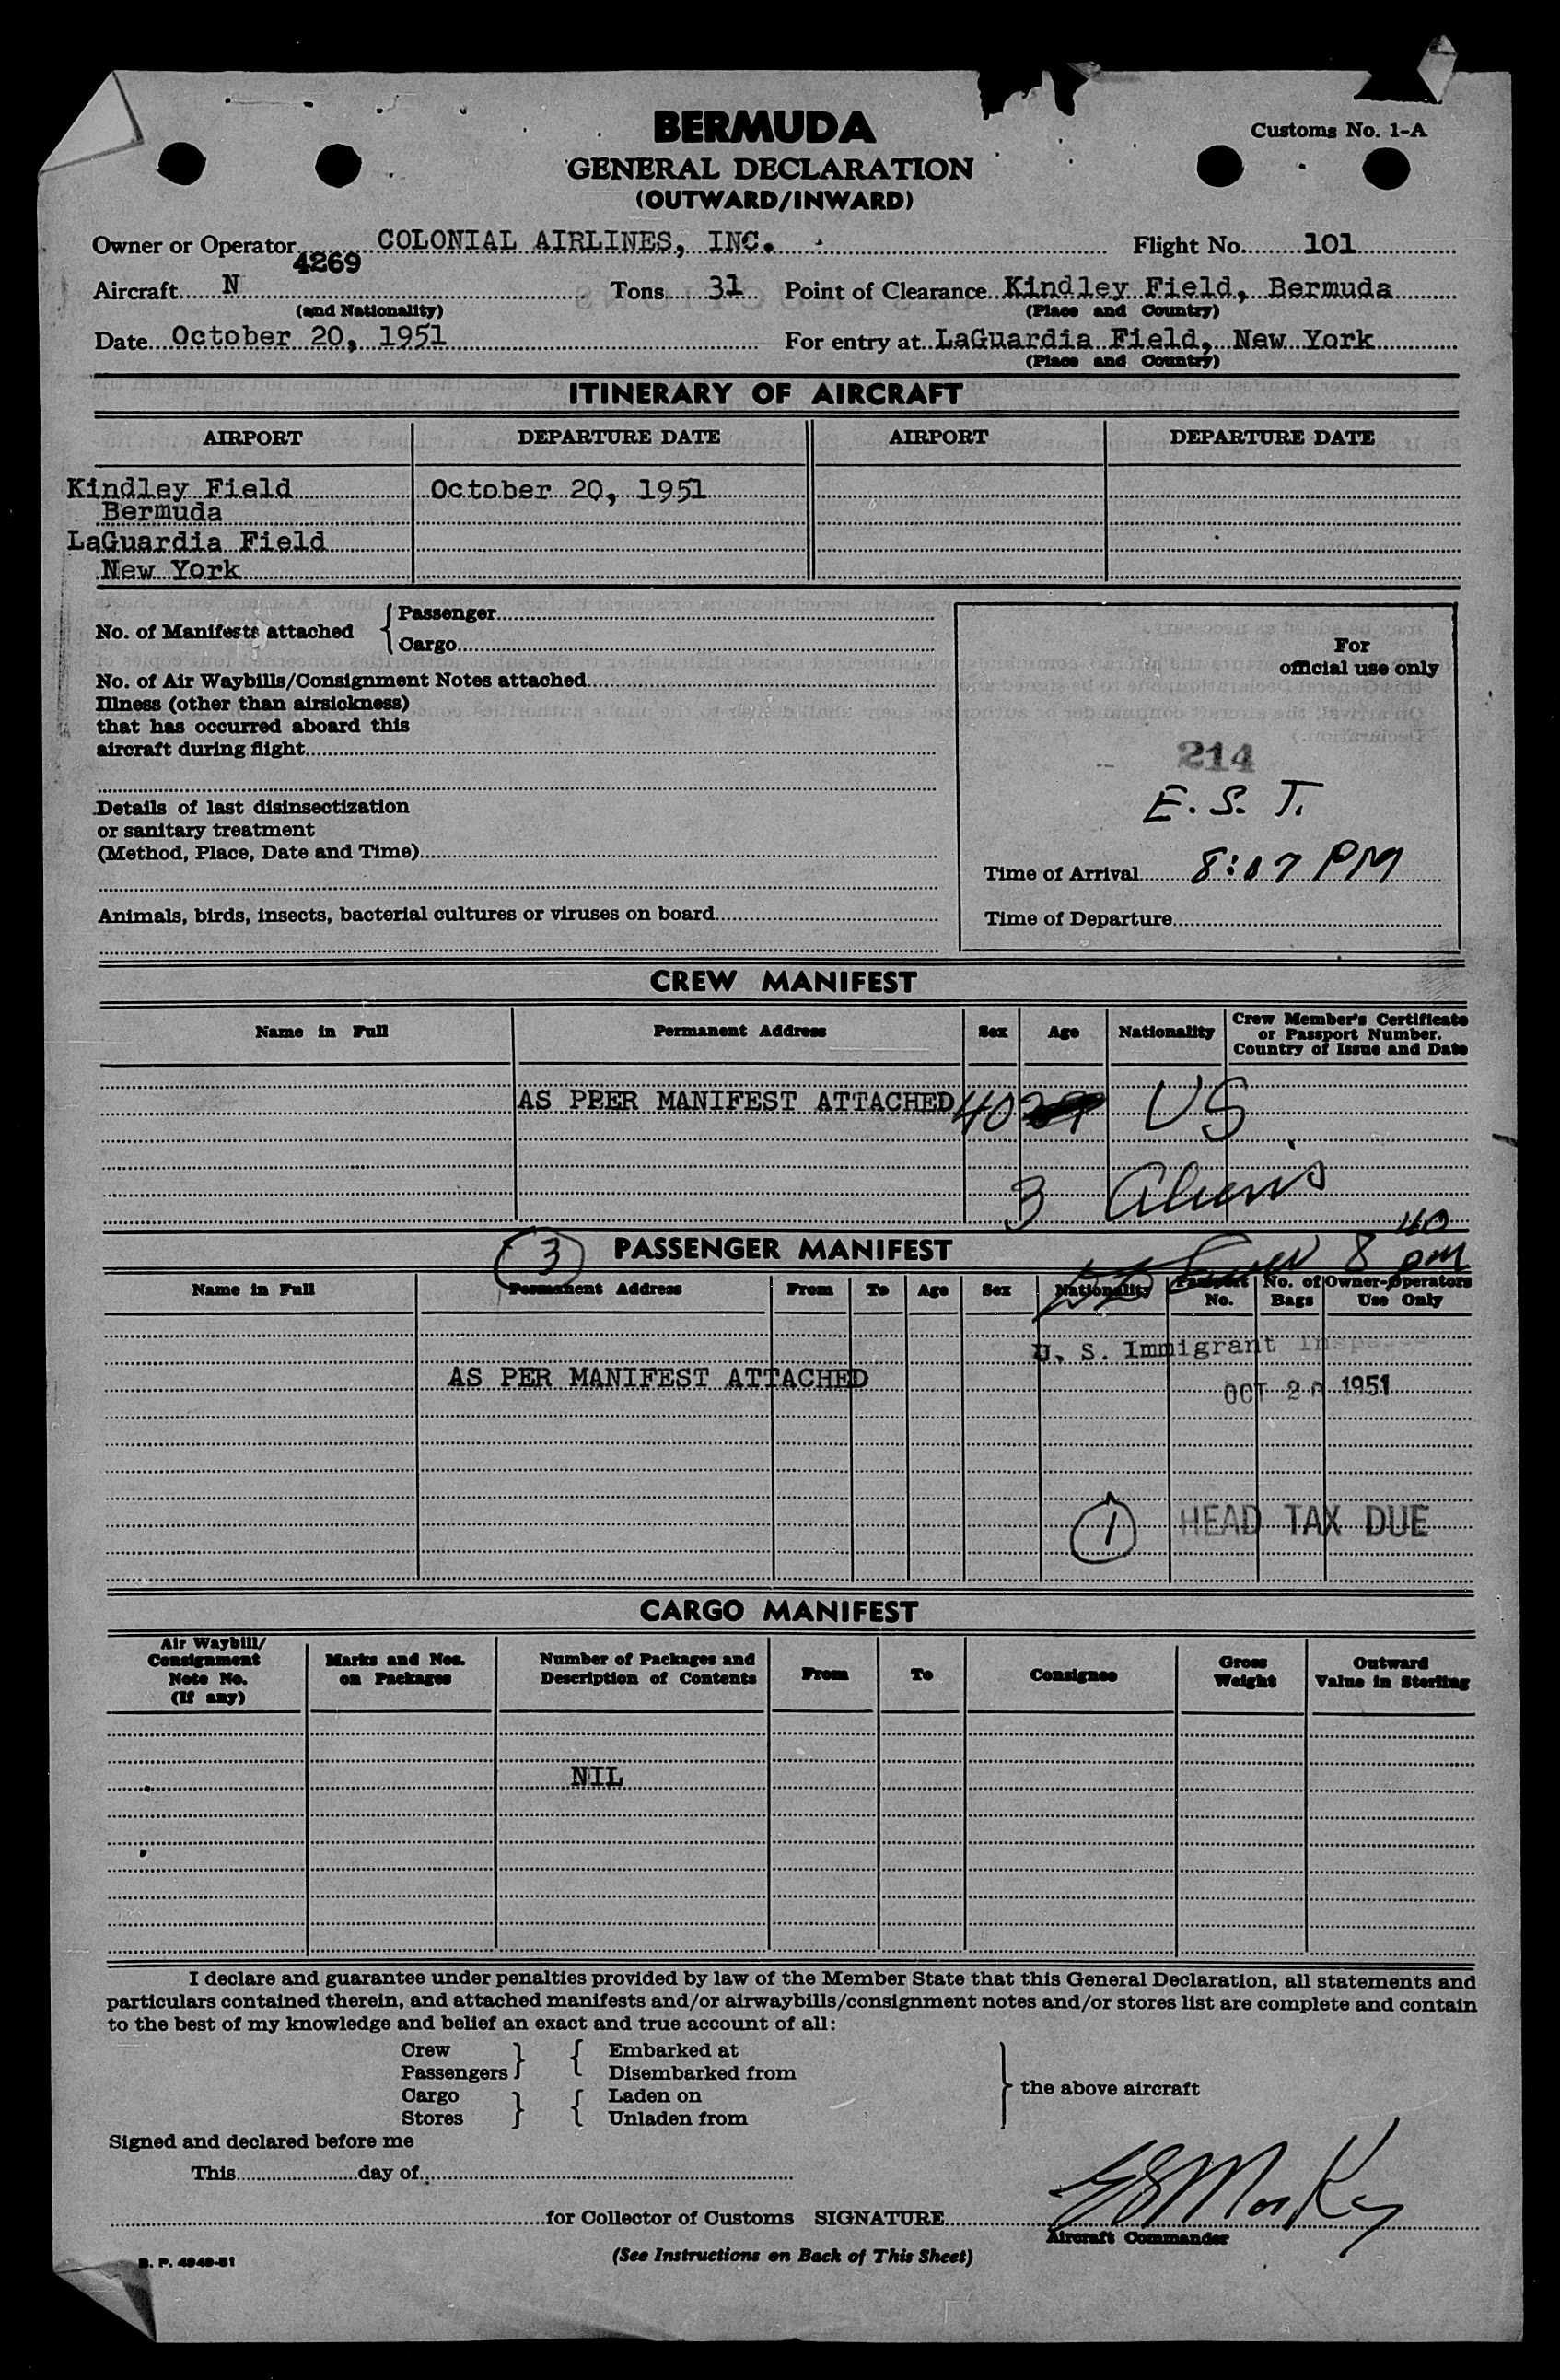 BERMUDA
Customs No. 1-A
GENERAL DECLARATION
(OUTWARD/INWARD)
Owner or Operator COLONIAL AIRLINES, INC. Flight No. 101
4269
Aircraft N Tons 31 Point of Clearance Kindley Field, Bermuda
(and Nationality) (Place and Country)
Date October 20, 1951 For entry at LaGuardia Field, New York
(Place and Country)
ITINERARY OF AIRCRAFT
AIRPORT DEPARTURE DATE AIRPORT DEPARTURE DATE
Kindley Field October 20, 1951
Bermuda
LaGuardia Field
New York
No. of Manifests attached { Passenger
Cargo
For
official use only
No. of Air Waybills/Consignment Notes attached
Illness (other than airsickness)
that has occurred aboard this
aircraft during flight
214
E. S. T.
Details of last disinsectization
or sanitary treatment
(Method, Place, Date and Time)
Time of Arrival 8:07 PM
Animals, birds, insects, bacterial cultures or viruses on board
Time of Departure
CREW MANIFEST
Name in Full Permanent Address Sex Age Nationality Crew Member's Certificate
or Passport Number.
Country of Issue and Date
AS PPER MANIFEST ATTACHED 40 US
3 Aliens
40
3 PASSENGER MANIFEST 8 pm
Name in Full Permanent Address From To Age Sex Nationality Passport No. No. of Bags Owner-Operators Use Only
U. S. Immigrant Inspector
AS PER MANIFEST ATTACHED
OCT 20 1951
1 HEAD TAX DUE
CARGO MANIFEST
Air Waybill/
Consignment
Note No.
(If any)
Marks and Nos.
on Packages
Number of Packages and
Description of Contents
From To Consignee
Gross
Weight
Outward
Value in Sterling
NIL
I declare and guarantee under penalties provided by law of the Member State that this General Declaration, all statements and
particulars contained therein, and attached manifests and/or airwaybills/consignment notes and/or stores list are complete and contain
to the best of my knowledge and belief an exact and true account of all:
Crew } { Embarked at
Passengers Disembarked from
} the above aircraft
Cargo } { Laden on
Stores Unladen from
Signed and declared before me
This day of
for Collector of Customs SIGNATURE
Aircraft Commander
(See Instructions on Back of This Sheet)
B. P. 4949-51